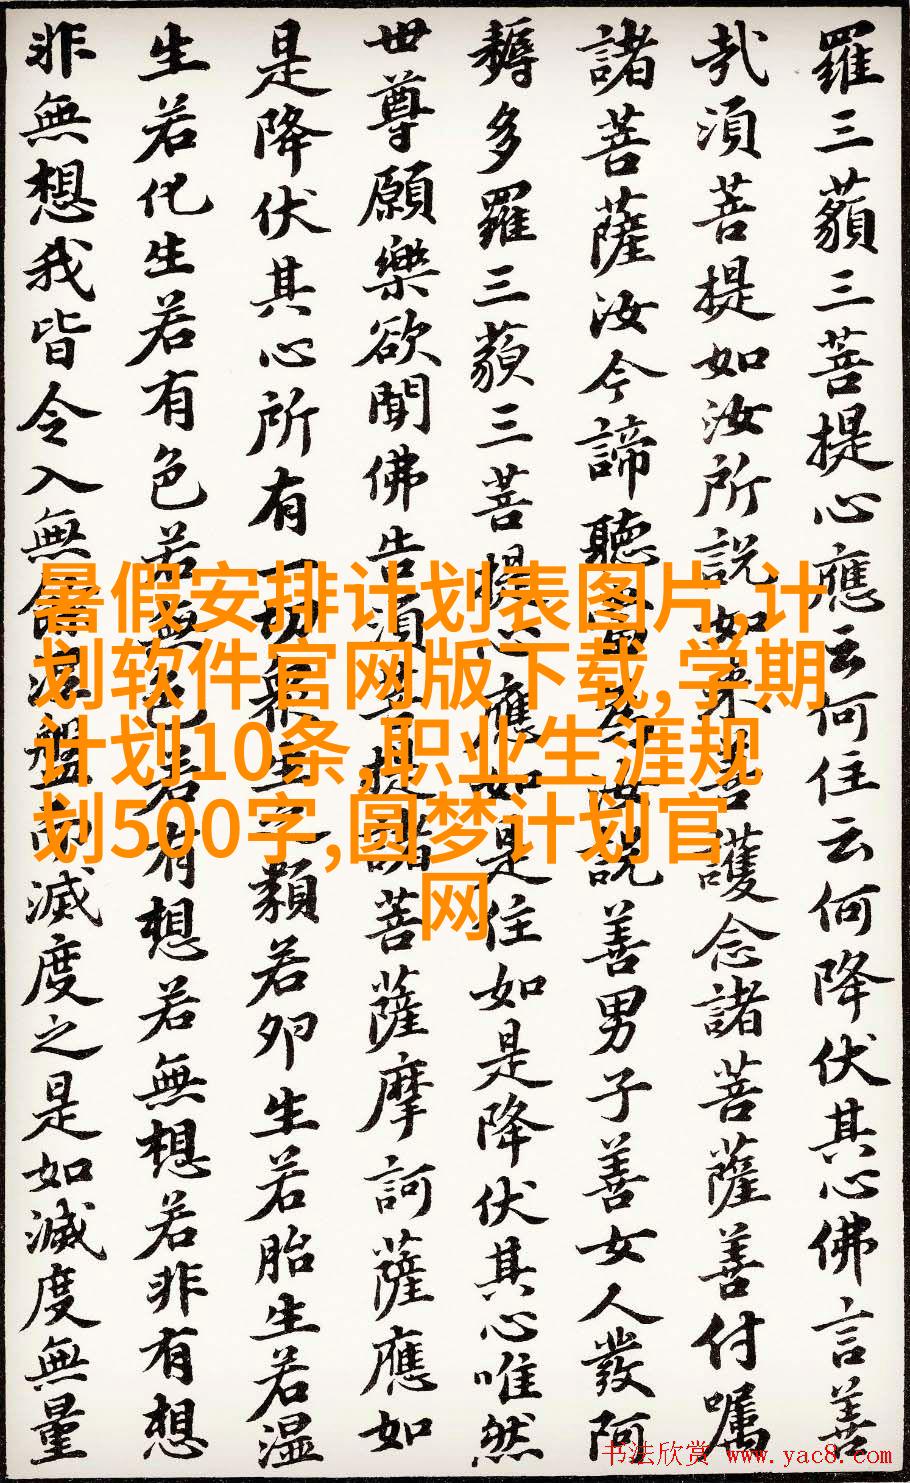 羅三藐三菩提心應云何住云何降伏其心佛言善
哉須菩提如汝所說如來善護念諸菩薩善付囑
諸菩薩汝今諦聽當為汝說善男子善女人發阿
耨多羅三藐三菩提心應如是住如是降伏其心唯然
世尊願樂欲聞佛告須菩提諸菩薩摩訶薩應如
是降伏其心所有一切眾生之類若卵生若胎生若溫
生若化生若有色若無色若有想若無想若非有想
非無想我皆令入無餘涅盤而滅度之是如滅度無量
暑假安排计划表图片,计
划软件官网版下载,学期
计划10条,职业生涯规
划500字,圆梦计划官
网
书法欣赏 www.yac8.com